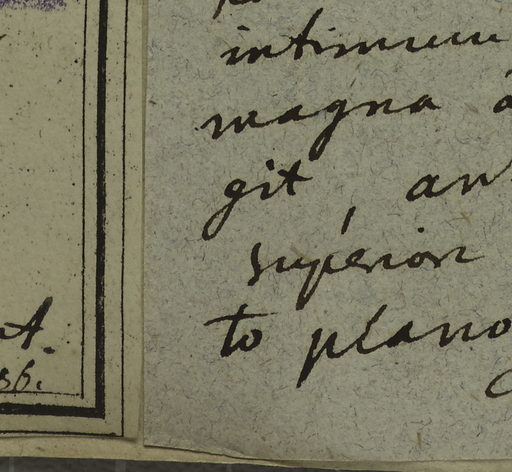 intimum
magna
git, an
superior
to plano